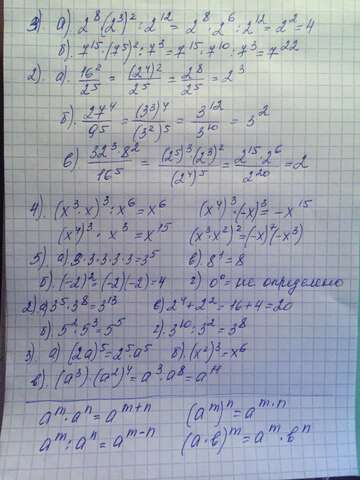 3). а) 2⁸·(2³)²:2¹² = 2⁸·2⁶:2¹² = 2² = 4
б). 7¹⁵·(7⁵)²:7³ = 7¹⁵·7¹⁰:7³ = 7²²
2). а). 16²/2⁵ = (2⁴)²/2⁵ = 2⁸/2⁵ = 2³
б). 27⁴/9⁵ = (3³)⁴/(3²)⁵ = 3¹²/3¹⁰ = 3²
в) 32³·8²/16⁵ = (2⁵)³·(2³)²/(2⁴)⁵ = 2¹⁵·2⁶/2²⁰ = 2
4) (x³·x)³:x⁶ = x⁶ (x⁴)³·(-x)³ = -x¹⁵
(x⁴)³·x³ = x¹⁵ (x³·x²)² = (-x)⁴(-x³)
5) а) 3·3·3·3·3 = 3⁵ в) 8¹ = 8
б). (-2)² = (-2)(-2) = 4 г) 0⁰ = не определено
2) а) 3⁵·3⁸ = 3¹³ в) 2⁴+2² = 16+4 = 20
б). 5²·5³ = 5⁵ г). 3¹⁰:3² = 3⁸
3) а) (2a)⁵ = 2⁵·a⁵ б). (x²)³ = x⁶
в). (a³)·(a²)⁴ = a³·a⁸ = a¹¹
aᵐ·aⁿ = aᵐ⁺ⁿ (aᵐ)ⁿ = aᵐ·ⁿ
aᵐ:aⁿ = aᵐ⁻ⁿ (a·b)ᵐ = aᵐ·bⁿ